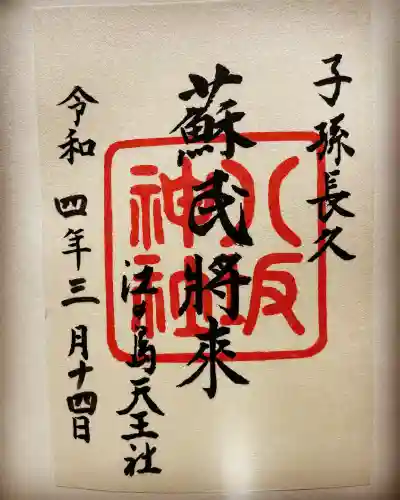 子孫長久
蘇民將來
江の島天王社
令和四年三月十四日
八坂
神社